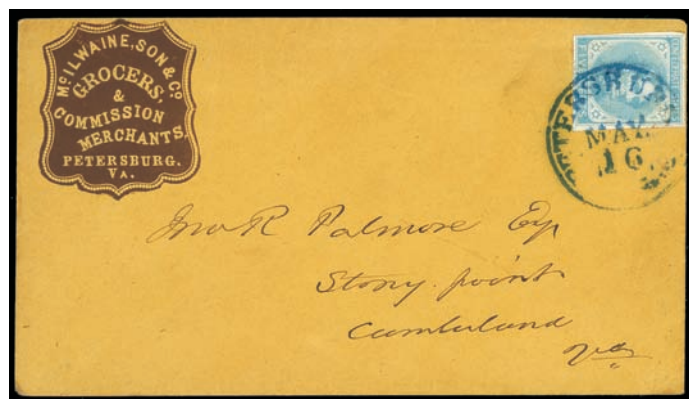 McILWAINE, SON & Co
GROCERS,
&
COMMISSION
MERCHANTS,
PETERSBURG.
VA.
PETERSBURG
MAY
16
Jno R Palmore Esq
Stony point
Cumberland
Va